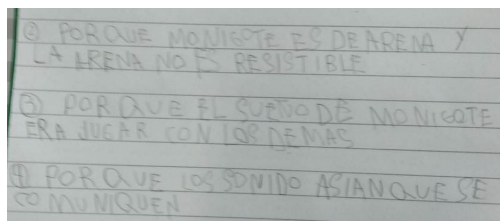 ② PORQUE MONIGOTE ES DE ARENA Y
LA ARENA NO ES RESISTIBLE
③ PORQUE EL SUEÑO DE MONIGOTE
ERA JUGAR CON LOS DEMAS
④ PORQUE LOS SONIDO ASIAN QUE SE
COMUNIQUEN